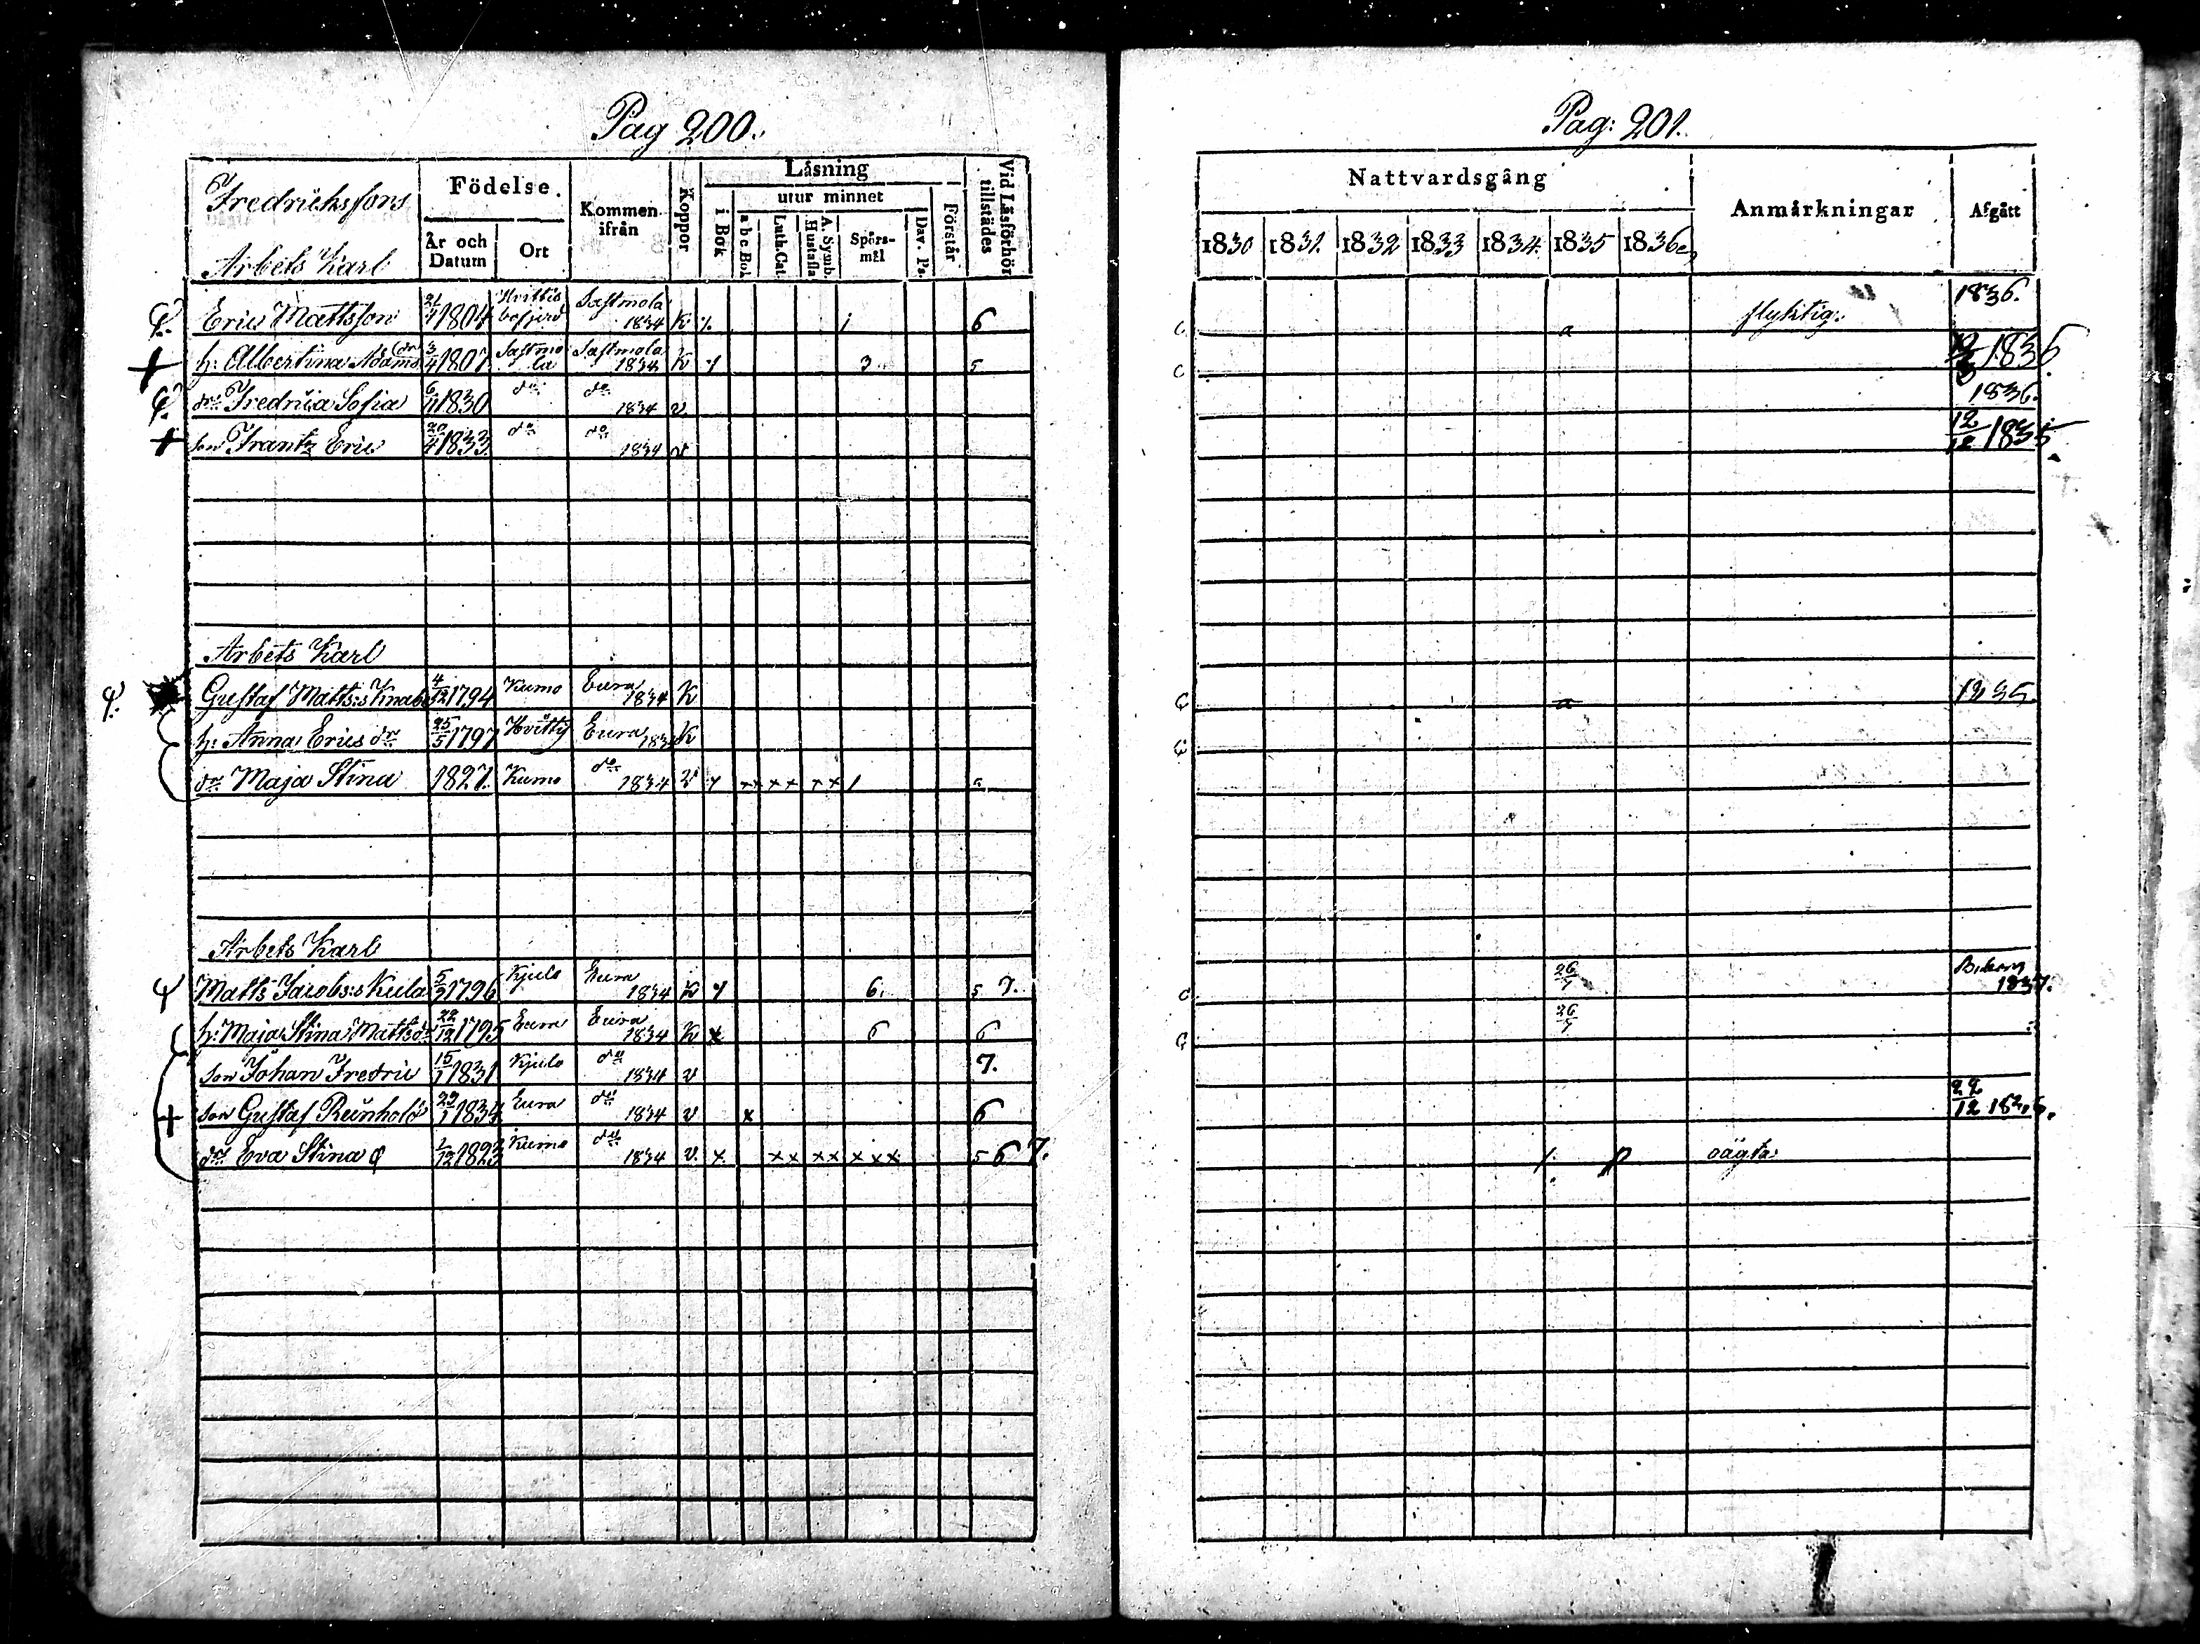 Pag 200.
Fredrichsfors
Födelse.
Kommen ifrån
Koppor
Läsning
i Bok
utur minnet
a b c Bok
Luth. Cat.
A. Symb. Hustafla
Spörs-mål
Dav. Ps.
Förstår
Vid Läsförhör tillstädes
Arbets Karl
År och Datum
Ort
Eric Mattsson 21/1 1804 Sastmola 1834 K 1 6
h: Albertina Adams dr 3/4 1807 Sastmola Sastmola 1834 K 3 5
dr Fredrica Sofia 6/11 1830 do do 1834 v
son Frantz Eric 20/4 1833 do do 1834 v
Arbets Karl
Gustaf Matts:s Knabe 4/12 1794 Kumo Eura 1834 K
h: Anna Erics dr 25/5 1797 Hvitty Eura K
dr Maja Stina 1827. Kumo do 1834 v x x x x x x 1
Arbets Karl
Matts Jacobs:s Kula 5/2 1796 Kjulo Eura 1834 K 6. 5 7.
h: Maja Stina Matts dr 22/12 1795 Eura Eura 1834 K x 6 6
son Johan Fredric 15/1 1831 Kjulo do 1834 v 7.
son Gustaf Reinhold 29/1 1834 Eura do 1834 v x 6
dr Eva Stina 1/12 1823 Kumo do 1834 v. x x x x x x x x 5 6 7.
Pag: 201.
Nattvardsgång
Anmärkningar
Afgått
1830 1831. 1832 1833 1834. 1835 1836
a flyktig. 1836.
1836.
1836.
12/12 1835
a 1835.
26/7 1837.
26/7
22/12
oägta